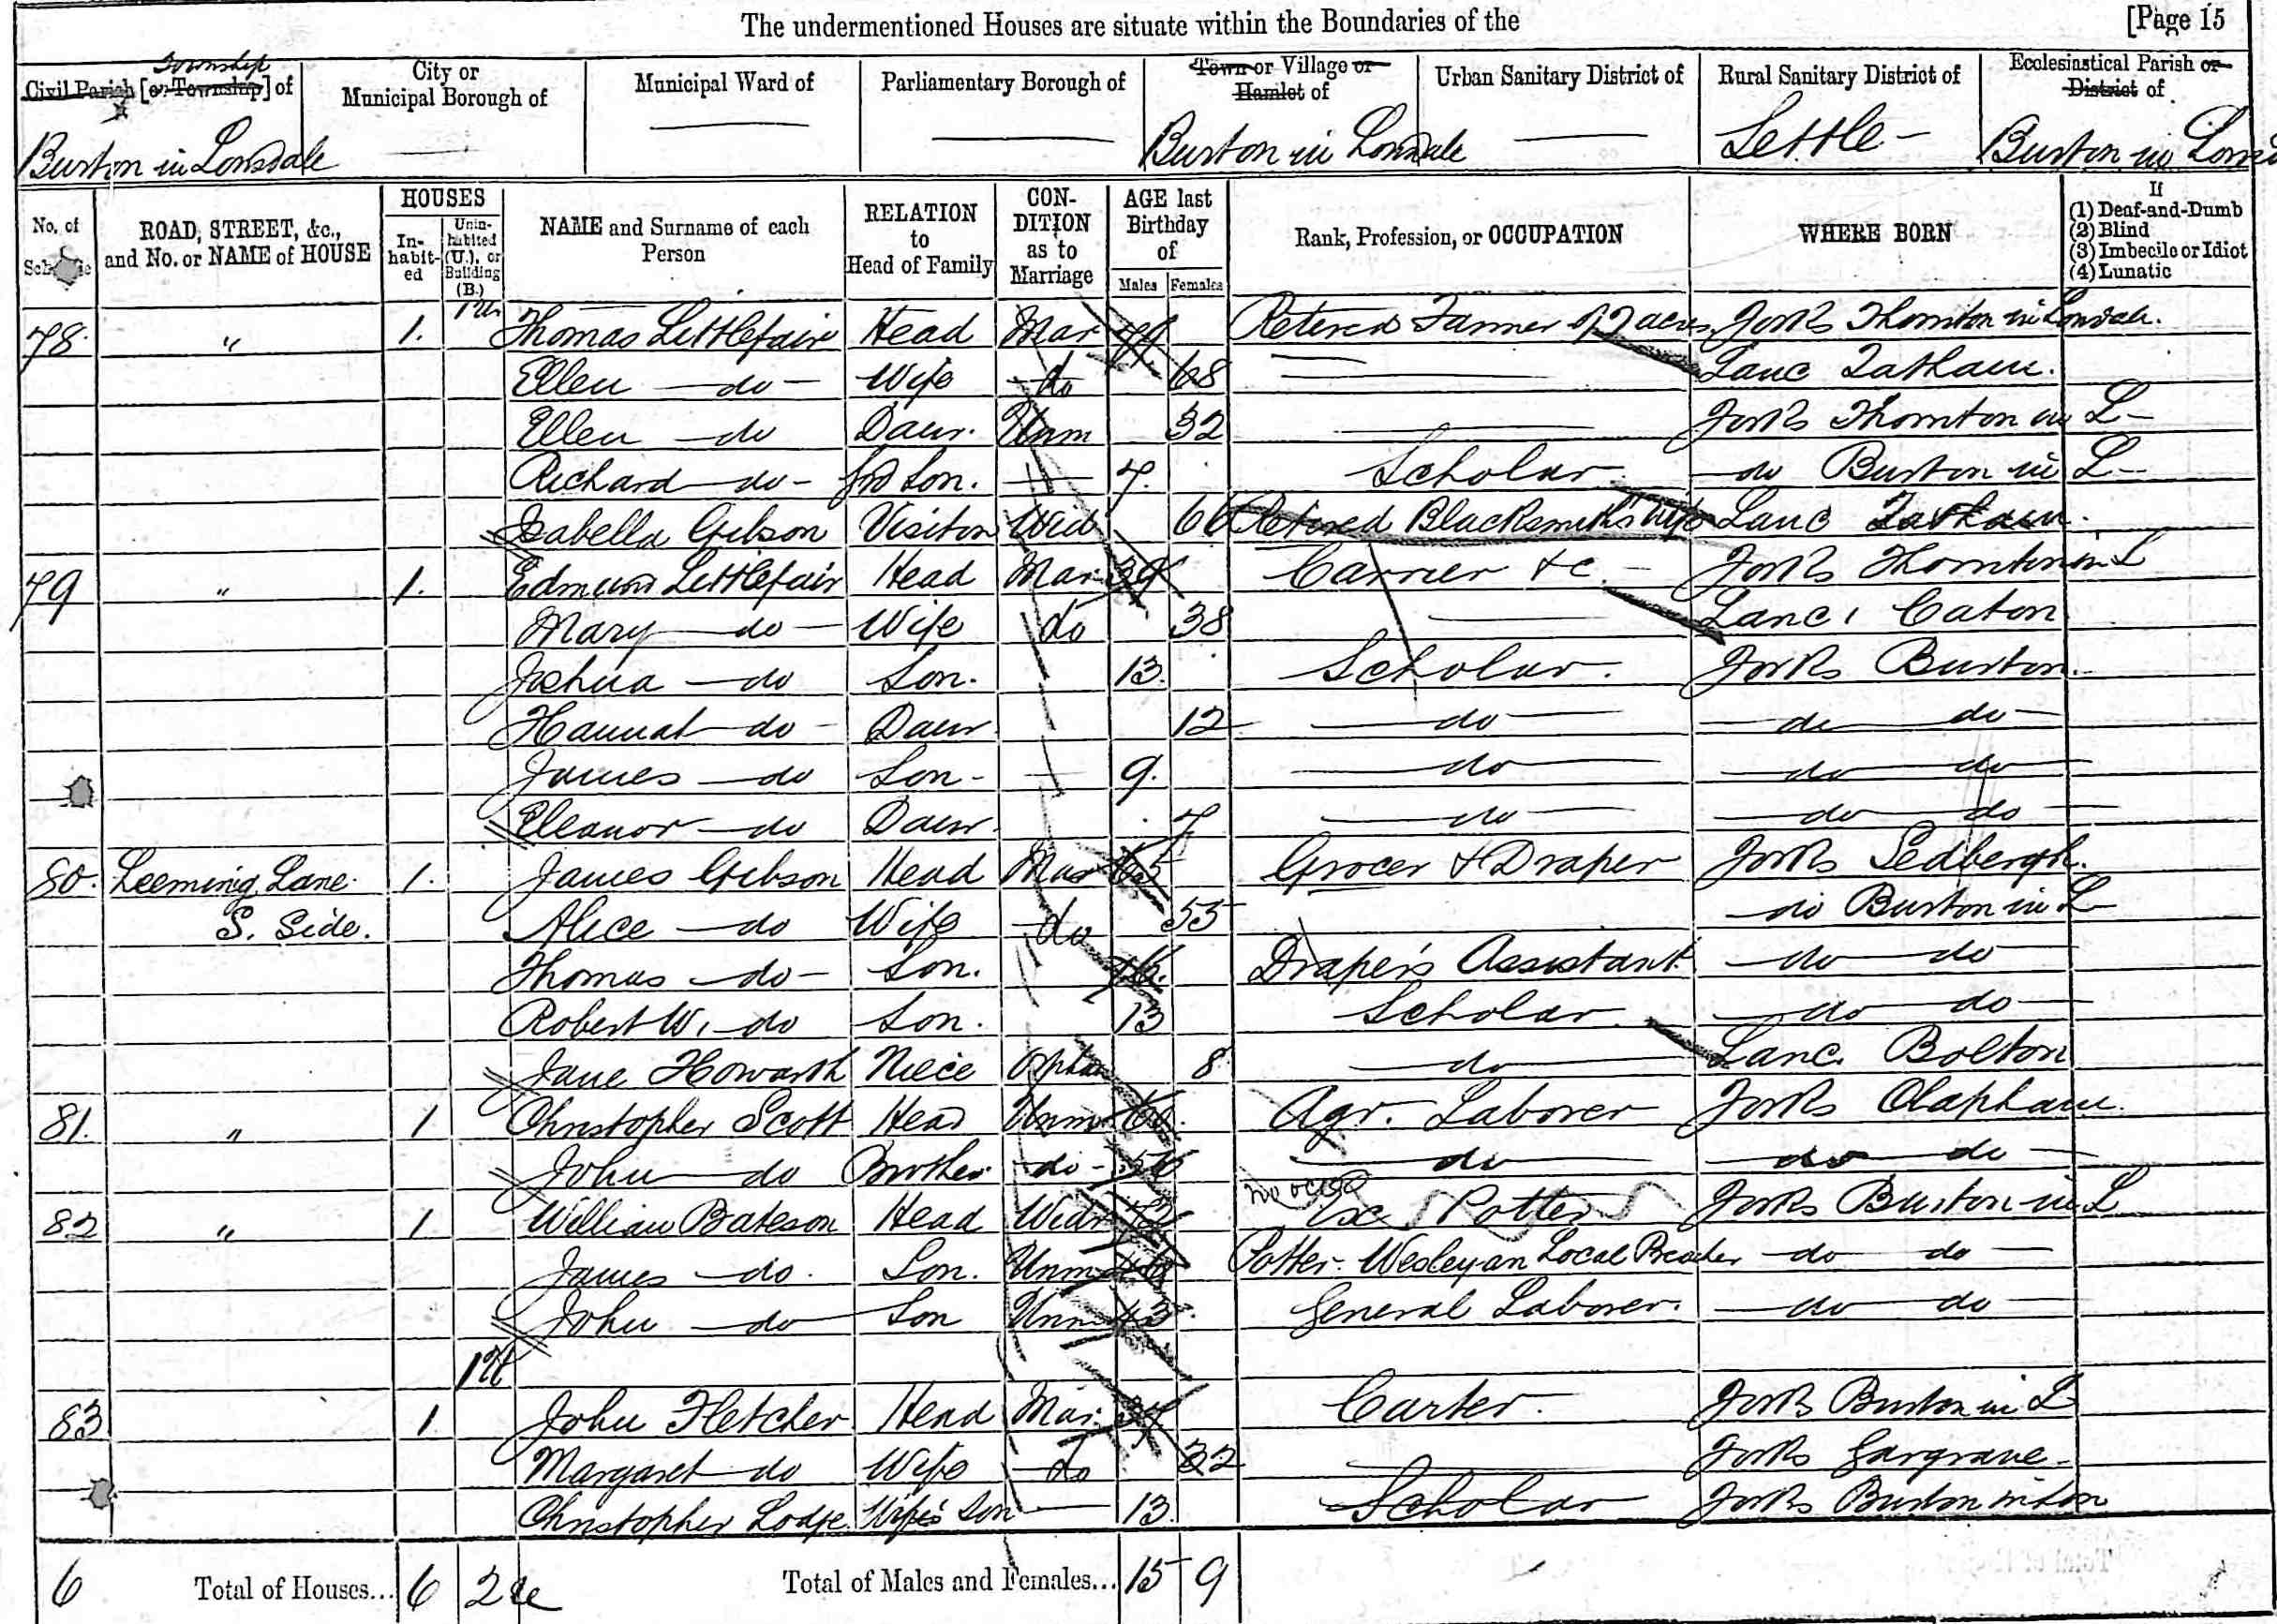 The undermentioned Houses are situate within the Boundaries of the [Page 15
Civil Parish [or Township] of Township
City or Municipal Borough of
Municipal Ward of
Parliamentary Borough of
Town or Village or Hamlet of
Urban Sanitary District of
Rural Sanitary District of
Ecclesiastical Parish or District of
Burton in Lonsdale — — — Burton in Lonsdale — Settle — Burton in Lonsd
No. of Schedule
ROAD, STREET, &c., and No. or NAME of HOUSE
HOUSES
In-habit-ed
Unin-habited (U.), or Building (B.)
NAME and Surname of each Person
RELATION to Head of Family
CON-DITION as to Marriage
AGE last Birthday of
Males Females
Rank, Profession, or OCCUPATION
WHERE BORN
If
(1) Deaf-and-Dumb
(2) Blind
(3) Imbecile or Idiot
(4) Lunatic
1 U
78. " 1. Thomas Littlefair Head Mar Retired Farmer of 7 acres. Yorks Thornton in Lonsdale.
Ellen — do — Wife do 68 — Lanc Tatham.
Ellen — do Daur. Unm 32 — Yorks Thornton in L —
Richard — do — Grd Son. — 7. Scholar — do Burton in L —
Isabella Gibson Visitor Wid 66 Retired Blacksmith's Wife Lanc Tatham.
79 " 1. Edmund Littlefair Head Mar 39 Carrier &c. — Yorks Thornton in L
Mary — do — Wife do 38 — Lanc. Caton
Joshua — do Son. 13. Scholar. Yorks Burton.
Hannah do — Daur 12 — do — — do do —
James — do Son — — 9. — do — — do do —
Eleanor — do Daur. 7 — do — — do do —
80. Leeming Lane. 1. James Gibson Head Mar 65 Grocer & Draper Yorks Sedbergh.
S. Side. Alice — do Wife — do 55 — do Burton in L —
Thomas — do — Son. 16. Draper's Assistant. — do do —
Robert W. — do Son. 13 Scholar. — do do —
Jane Howarth Niece Orphan 8 — do — Lanc. Bolton
81. " 1 Christopher Scott Head Unm Agr. Laborer Yorks Clapham.
John — do Brother — do — — do — — do do —
82 " 1 William Bateson Head Widr no occn Ex Potter Yorks Burton in L
James — do. Son. Unm Potter. Wesleyan Local Preacher — do do —
John — do Son Unm 43. General Laborer. — do do —
1 U
83 1 John Fletcher. Head Mar. Carter. Yorks Burton in L
Margaret do Wife — do 32 — Yorks Gargrave —
Christopher Lodge. Wife's Son — 13. Scholar Yorks Burton in Lon
6 Total of Houses... 6 2 U Total of Males and Females... 15 9